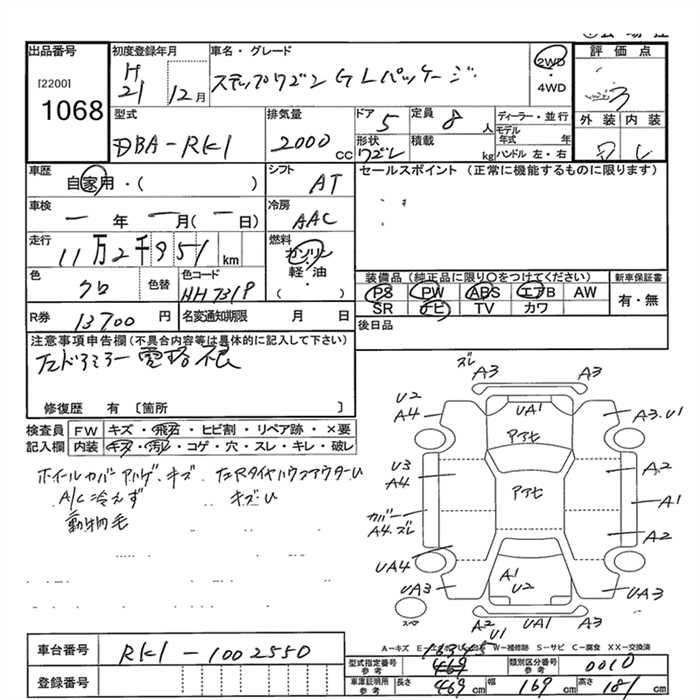 出品番号
[2200]
1068
初度登録年月
H
21 12月
車名・グレード
ステップワゴン G Lパッケージ
2WD
・
4WD
評価点
3
外装 内装
型式
DBA-RK1
排気量
2000 cc
ドア
5
定員
8 人
形状
ワゴン
積載
kg
ディーラー・並行
モデル
年式 年
ハンドル 左・右
車歴
自家用・( )
シフト
AT
セールスポイント (正常に機能するものに限ります)
車検
一 年 一月(一日)
冷房
AAC
走行
11万2千951 km
燃料
ガソリン
軽・油
( )
色
クロ
色替
色コード
NH731P
装備品(純正品に限り○をつけてください)
PS PW ABS エアB AW
SR ナビ TV カワ
新車保証書
有・無
R券
13700 円
名変通知期限 月 日
後日品
注意事項申告欄(不具合内容等は具体的に記入して下さい)
左ドアミラー電格不良
修復歴 有 〔箇所 〕
検査員
記入欄
FW キズ・飛石・ヒビ割・リペア跡・×要
内装 キズ・汚れ・コゲ・穴・スレ・キレ・破レ
ホイールカバー ハゲ、キズ 左RタイヤハウスアウターU
A/C冷えず キズU
動物毛
ズレ
A3 A3
U2
A4
UA1
A3.U1
アアヒ
U3
A4
A2
アアヒ
A1
カバー
A4.ズレ
A2
UA4
UA3
A1
U2
UA3
スペア
A2 U1
A2 UA3
A-キズ W-補修跡 S-サビ C-腐食 XX-交換済
車台番号
RK1-1002550
登録番号
型式指定番号
参考
類別区分番号
参考
0010
車庫証明用
参考
長さ 469 cm
幅 169 cm
高さ 181 cm